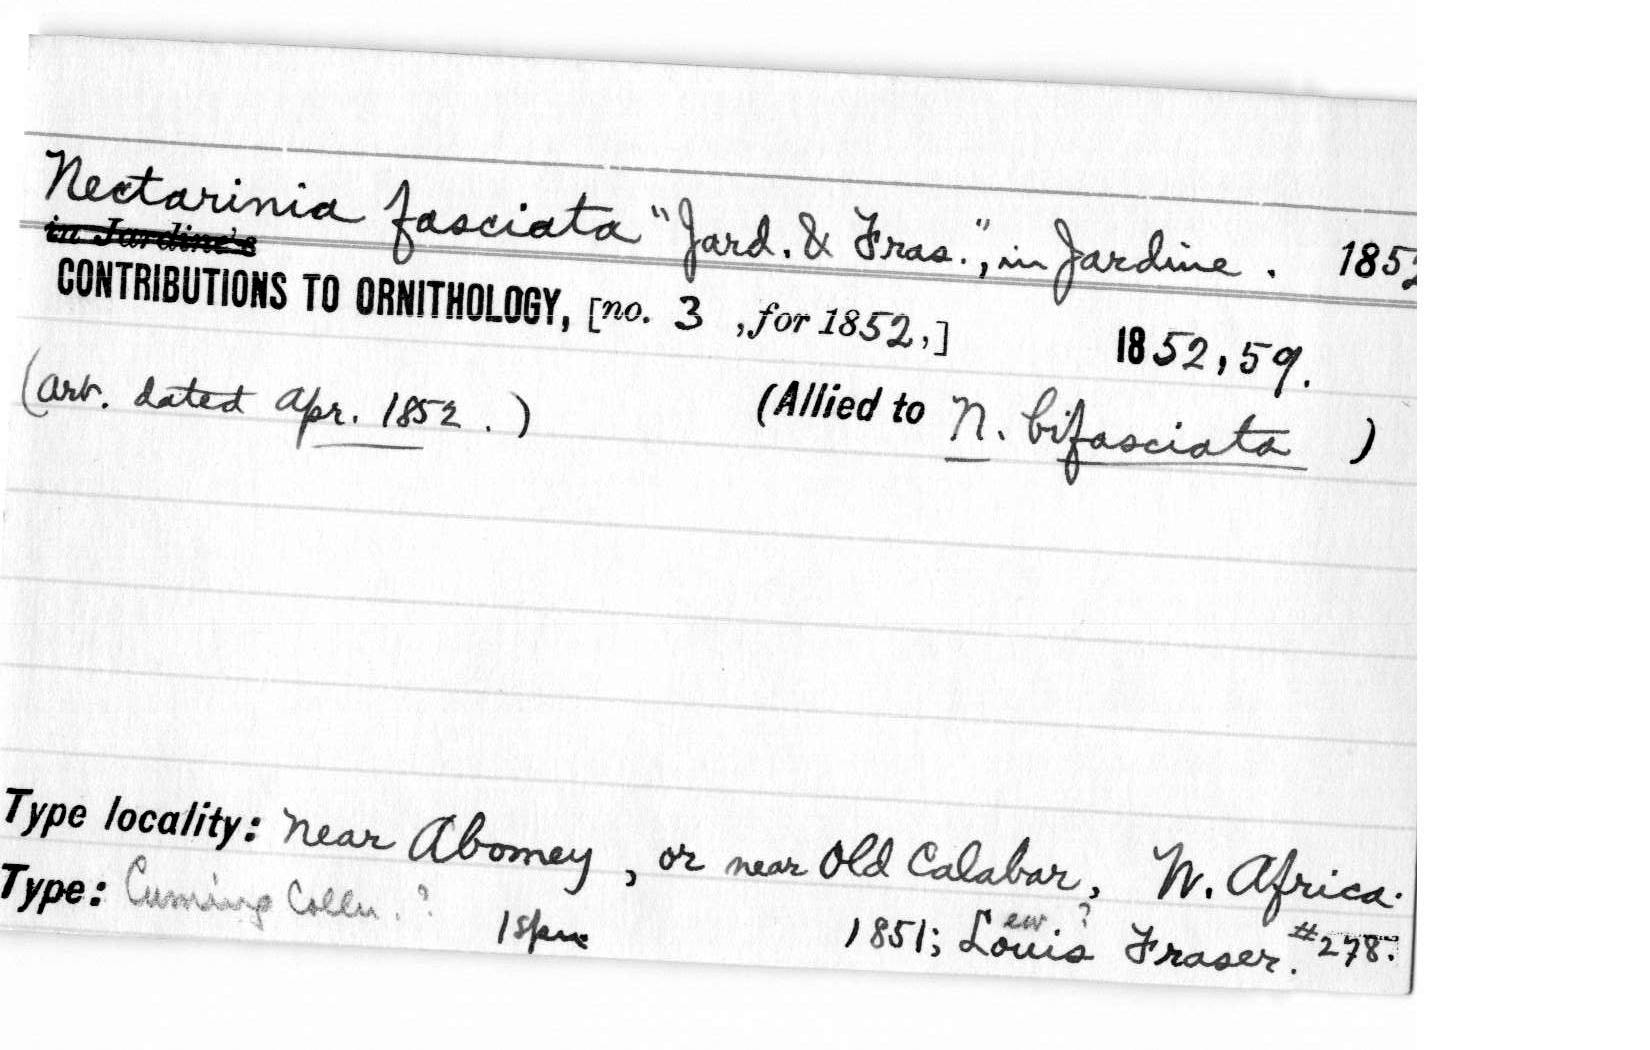 Nectarinia fasciata "Jard. & Fras.", in Jardine. 1852
in Jardine's
CONTRIBUTIONS TO ORNITHOLOGY, [no. 3, for 1852,] 1852, 59.
(art. dated Apr. 1852.) (Allied to N. bifasciata)
Type locality: near Abomey, or near Old Calabar, W. Africa.
Type: Cuming Colln.? 1 spm 1851; Louis Fraser. #278.
ew?